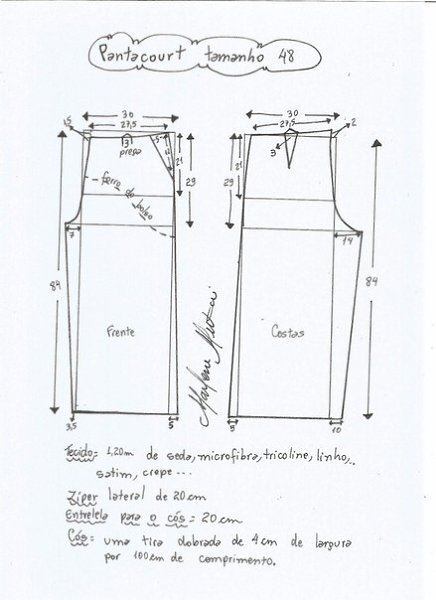 Pantacourt tamanho 48
30
27,5
1,5
3
prega
5
21
29
forro do bolso
7
84
Frente
3,5
5
30
27,5
2
3
21
29
14
84
Costas
5
10
Marlene Mukai
Tecido = 1,20m de seda, microfibra, tricoline, linho,..
satim, crepe ...
Zíper lateral de 20cm
Entretela para o cós = 20cm
Cós: uma tira dobrada de 4cm de largura
por 100cm de comprimento.